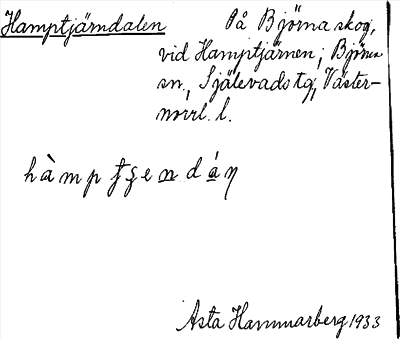 Hamptjärndalen På Björna skog,
vid Hamptjärnen; Björna
sn., Själevads tg; Väster-
norrl. l.
Asta Hammarberg 1933